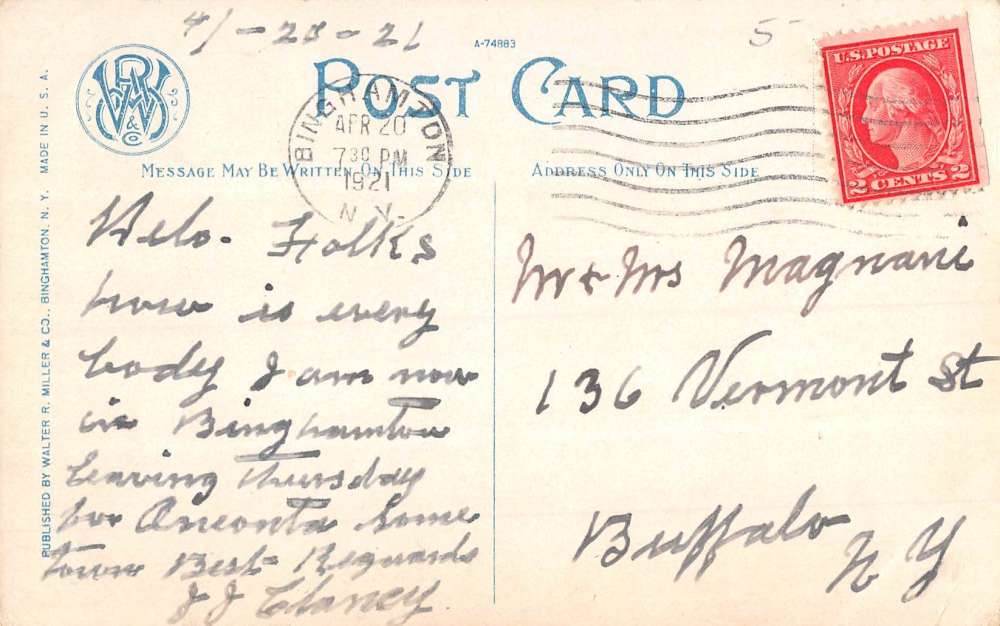 4/-23-21
5
A-74883
POST CARD
WRM & Co
BINGHAMTON
APR 20
7 30 PM
1921
N.Y.
U.S. POSTAGE
2 CENTS 2
MESSAGE MAY BE WRITTEN ON THIS SIDE
ADDRESS ONLY ON THIS SIDE
PUBLISHED BY WALTER R. MILLER & CO., BINGHAMTON, N. Y. MADE IN U. S. A.
Helo. Folks
how is every
body I am now
in Binghamton
Leaving Thursday
for Oneonta some
town Best Reguards
J J Clancy
Mr & Mrs Magnani
136 Vermont St
Buffalo
N Y